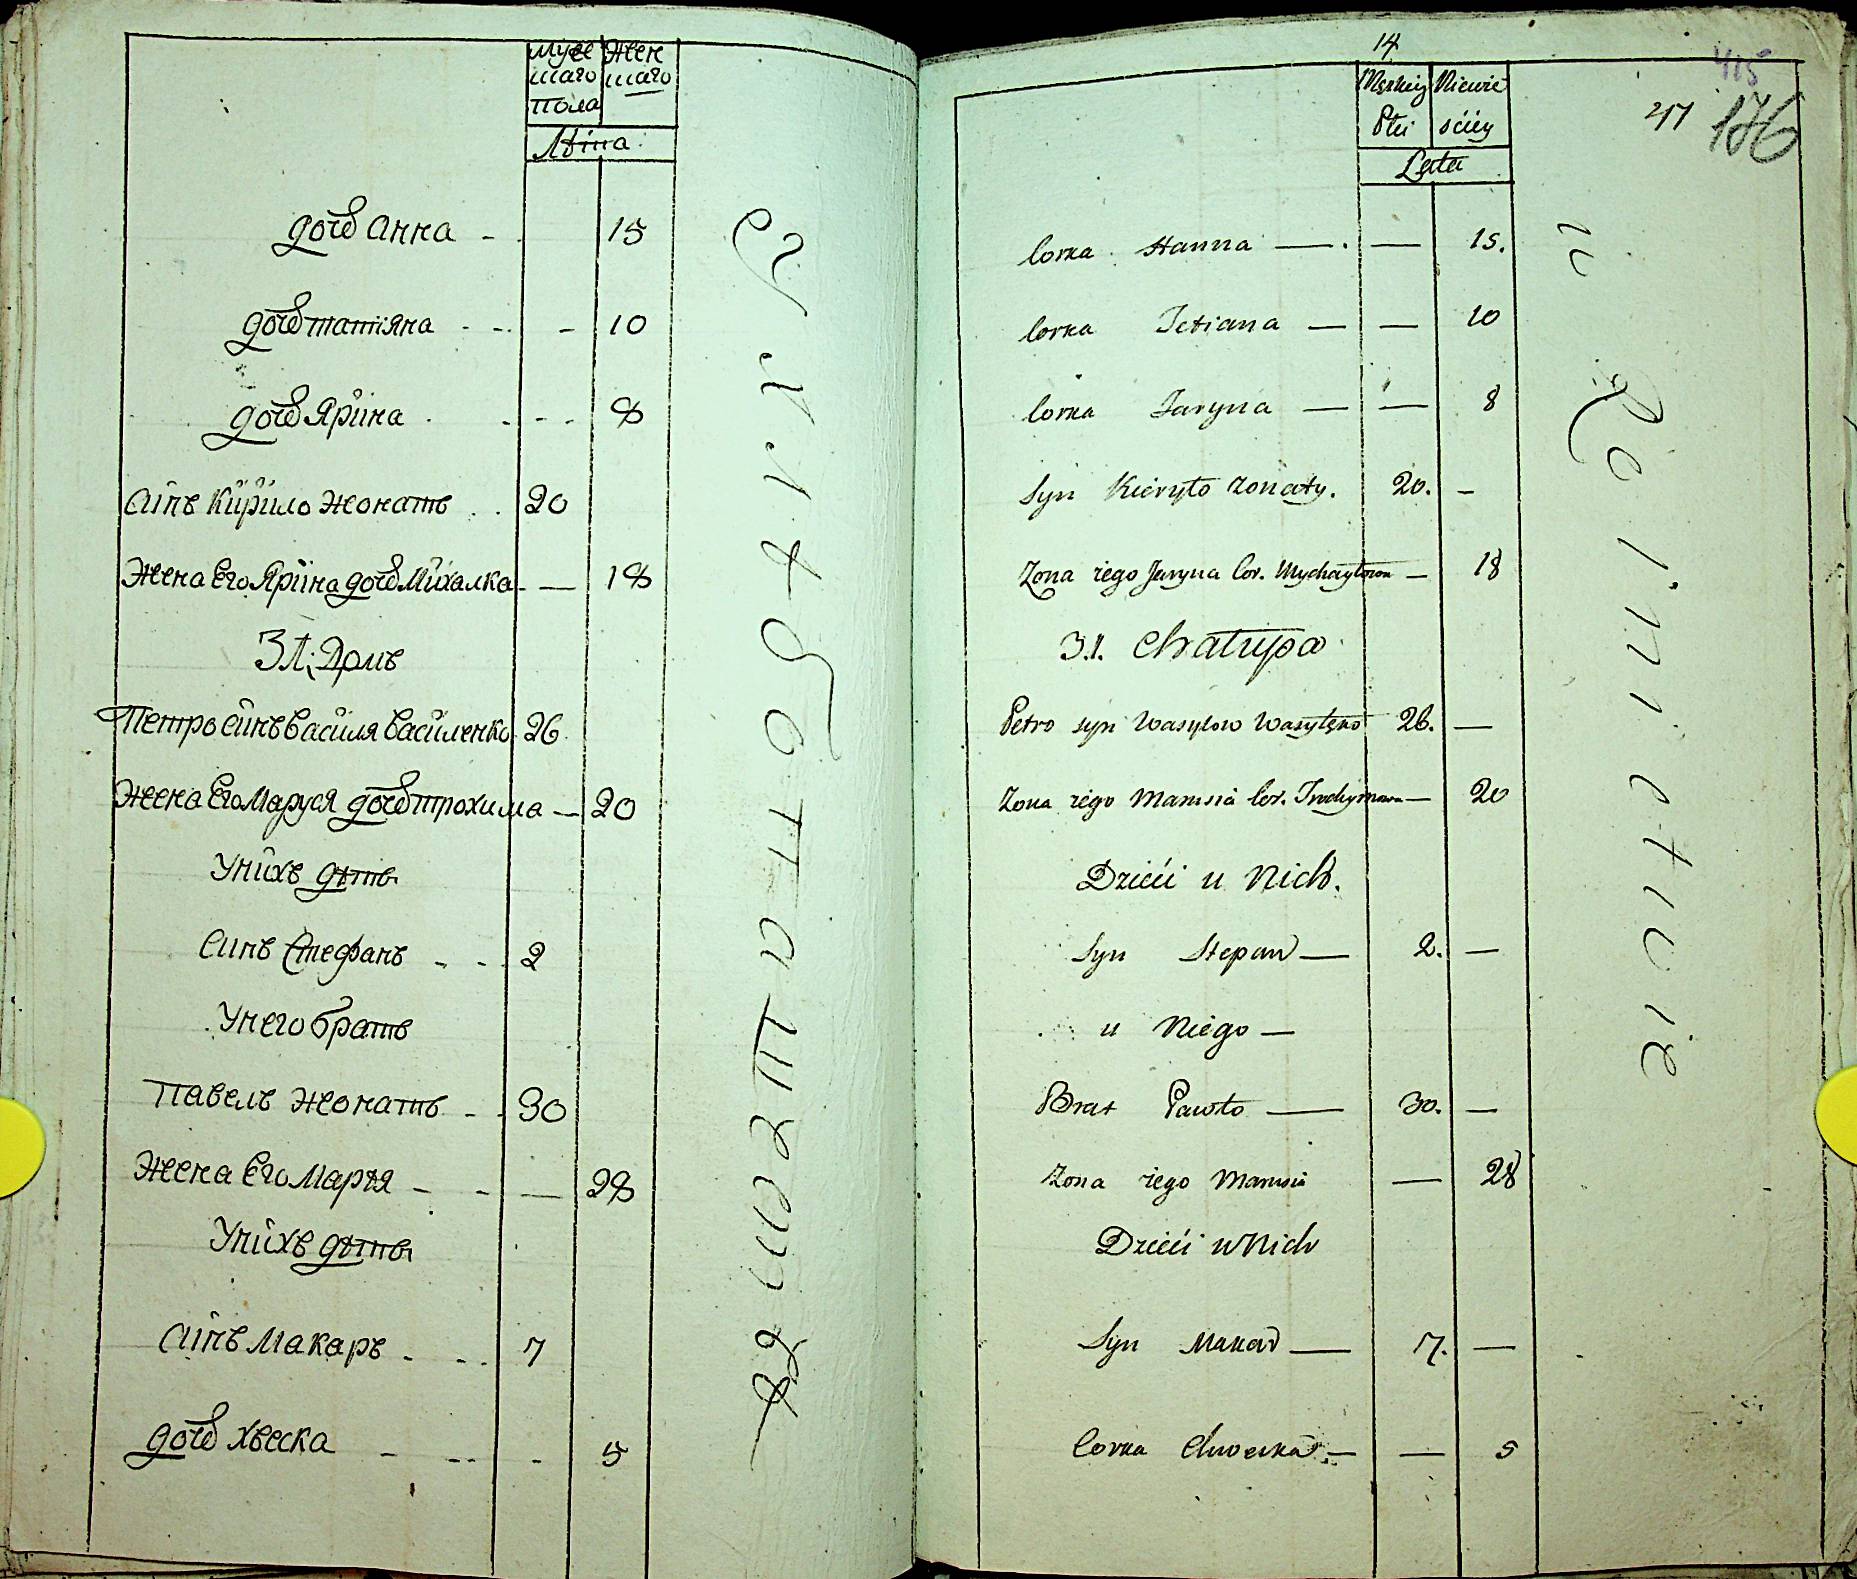 Муже Жен
шаго шаго
пола
Лѣта
дочь Анна - 15
дочь татіяна - - - 10
дочь Яріна - - - 8
Сінъ Кірило жонатъ . . 20
Жена Его Яріна дочь Міхалка - — 18
31 Домъ
Петро сінъ Васіля Василенко 26
Жена Его Маруся дочь трохима — 20
Уніхъ дѣти
Синъ Стефанъ - - 2
Унего братъ
Павелъ жонатъ - - 30
Жена Его Марія - - — 28
Уніхъ дѣти
Сінъ Макаръ - - - 7
дочь Хвеска - -- - 5
14
Męzkiey Niewie
Płci sciey
Lata
415
211 176
Corka Hanna — — 15.
Corka Tetiana — — 10
Corka Jaryna — — 8
Syn Kieryło zonaty. 20. —
Zona iego Jaryna Cor. Mychayłowa — 18
31. Chałupa
Petro syn Wasylow Wasylęko 26. —
Zona iego Marusia Cor. Trochymowa — 20
Dzieci u Nich.
Syn Stepan — 2. —
u Niego —
Brat Pawło — 30. —
Zona iego Marusia — 28
Dzieci u Nich
Syn Makar — 7. —
Corka Chweska — — 5